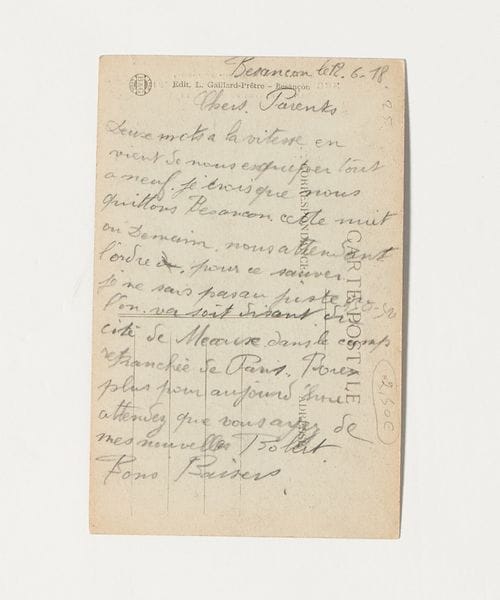 Besançon le 12.6-18
Edit. L. Gaillard-Prêtre - Besançon
Chers. Parents
Deux mots a la vitesse en
vient de nous esquiper tout
a neuf. je crois que nous
quittons Besançon. cette nuit
ou Demain. nous attendant
l'ordre. pour ce sauver
je ne sais pas au juste ou
l'on. va soit disant du
cité de Meaux dans le camp
retranchée de Paris. Rien
plus pour aujourd'hui
attendez que vous ayez de
mes nouvelles Robert
Bons Baisers
CARTE POSTALE
CORRESPONDANCE
ADRESSE